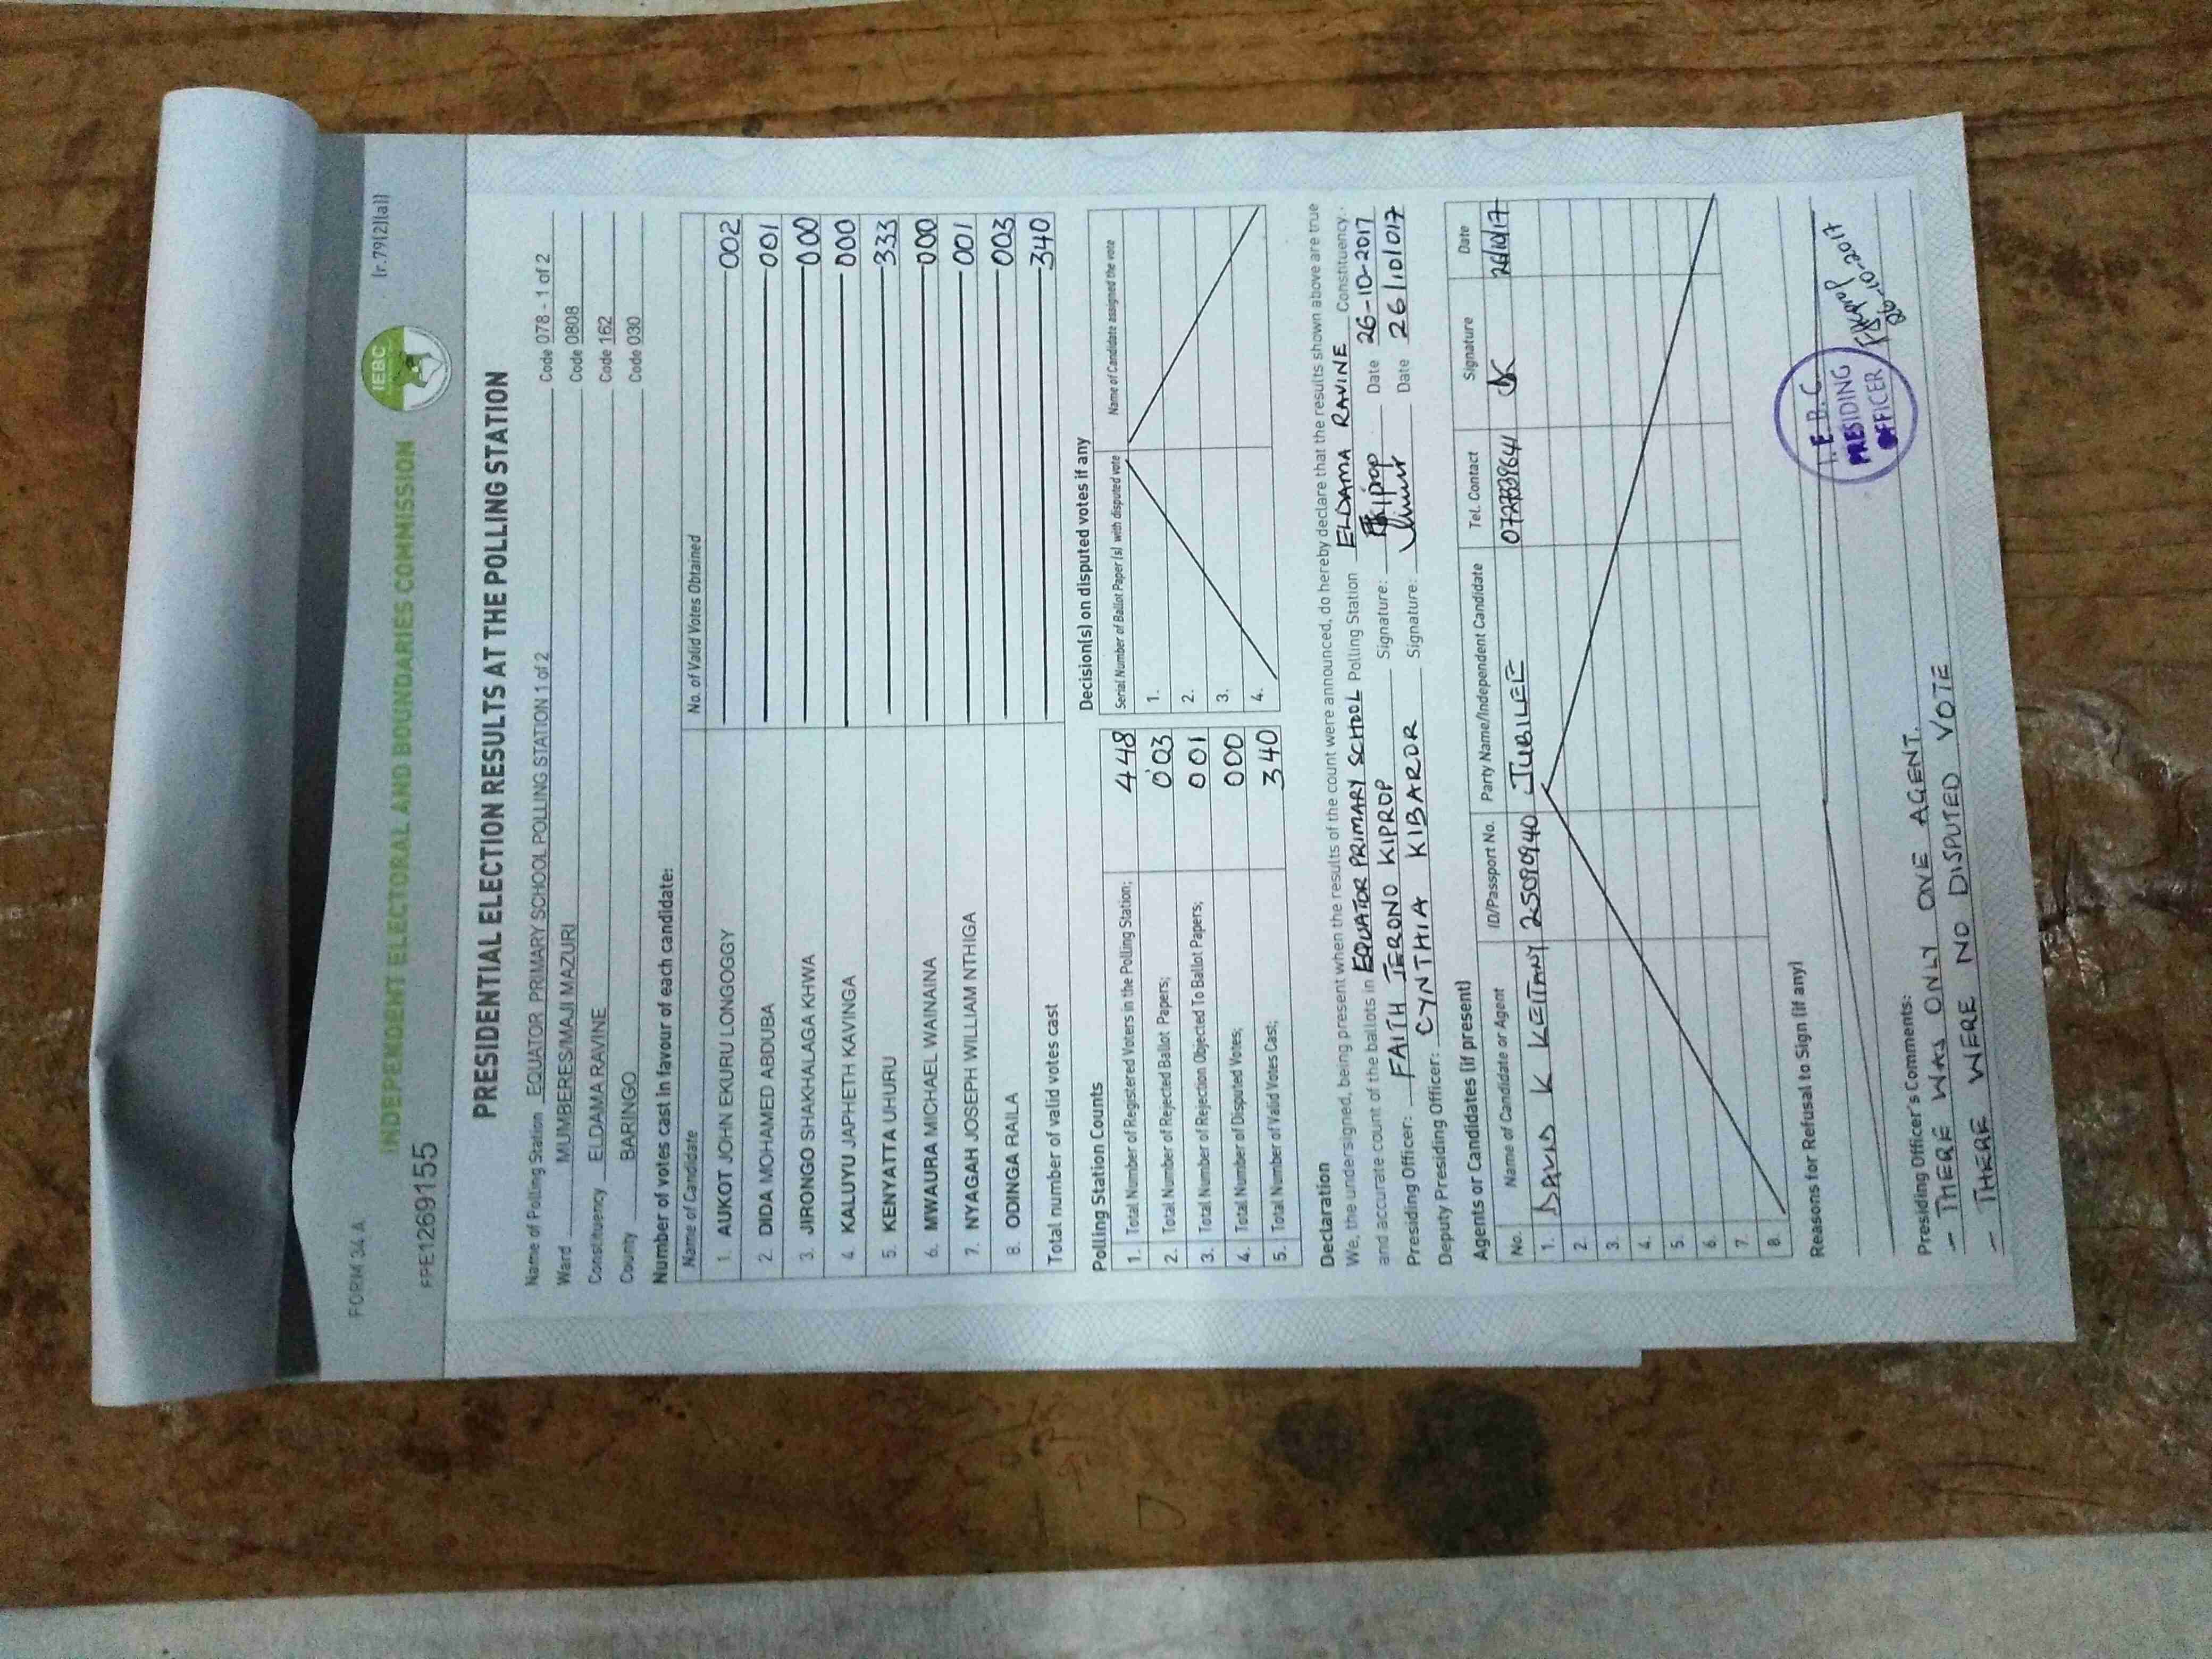 FORM 34 A
(r.79(2)(a))
INDEPENDENT ELECTORAL AND BOUNDARIES COMMISSION
IEBC
FPE1269155
PRESIDENTIAL ELECTION RESULTS AT THE POLLING STATION
Name of Polling Station EQUATOR PRIMARY SCHOOL POLLING STATION 1 of 2 Code 078 - 1 of 2
Ward MUMBERES/MAJI MAZURI Code 0808
Constituency ELDAMA RAVINE Code 162
County BARINGO Code 030
Number of votes cast in favour of each candidate:
Name of Candidate No. of Valid Votes Obtained
1. AUKOT JOHN EKURU LONGOGGY 002
2. DIDA MOHAMED ABDUBA 001
3. JIRONGO SHAKHALAGA KHWA 000
4. KALUYU JAPHETH KAVINGA 000
5. KENYATTA UHURU 333
6. MWAURA MICHAEL WAINAINA 000
7. NYAGAH JOSEPH WILLIAM NTHIGA 001
8. ODINGA RAILA 003
Total number of valid votes cast 340
Polling Station Counts
1. Total Number of Registered Voters in the Polling Station; 448
2. Total Number of Rejected Ballot Papers; 003
3. Total Number of Rejection Objected To Ballot Papers; 001
4. Total Number of Disputed Votes; 000
5. Total Number of Valid Votes Cast; 340
Decision(s) on disputed votes if any
Serial Number of Ballot Paper (s) with disputed vote Name of Candidate assigned the vote
1.
2.
3.
4.
Declaration
We, the undersigned, being present when the results of the count were announced, do hereby declare that the results shown above are true
and accurate count of the ballots in EQUATOR PRIMARY SCHOOL Polling Station ELDAMA RAVINE Constituency.
Presiding Officer: FAITH JERONO KIPROP Signature: Kiprop Date 26-10-2017
Deputy Presiding Officer: CYNTHIA KIBAROR Signature: Date 26/10/017
Agents or Candidates (if present)
No. Name of Candidate or Agent ID/Passport No. Party Name/Independent Candidate Tel. Contact Signature Date
1. DAVID K KEITANY 25090940 JUBILEE 26/10/17
2.
3.
4.
5.
6.
7.
8.
Reasons for Refusal to Sign (if any)
I.E.B.C
PRESIDING
OFFICER
26-10-2017
Presiding Officer's Comments:
- THERE WAS ONLY ONE AGENT.
- THERE WERE NO DISPUTED VOTE